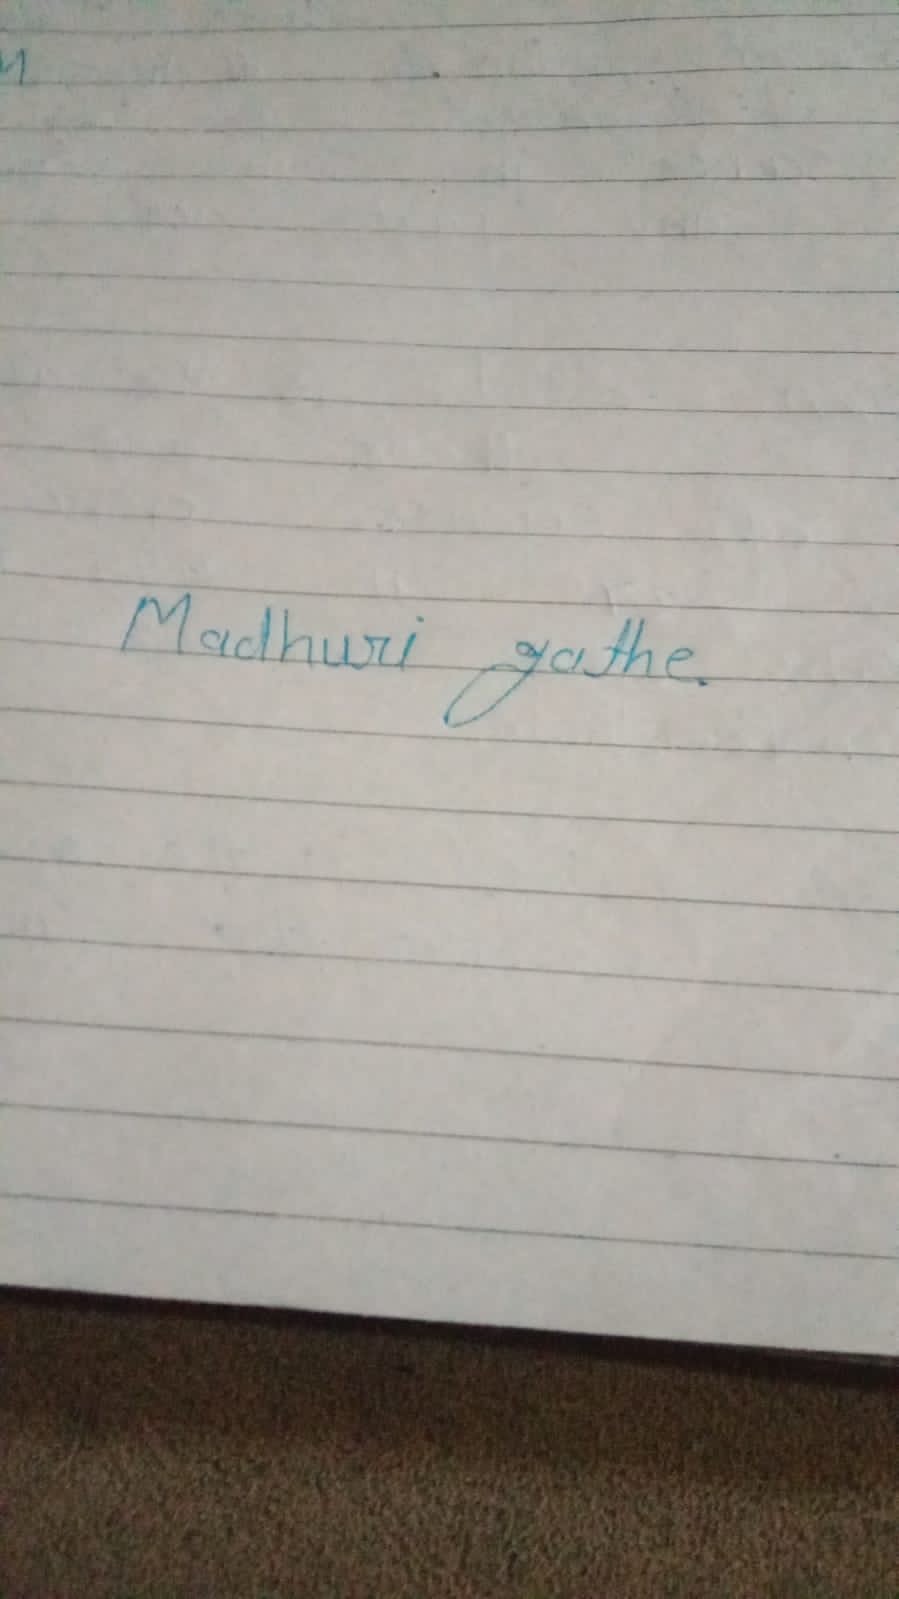 Madhuri gathe.